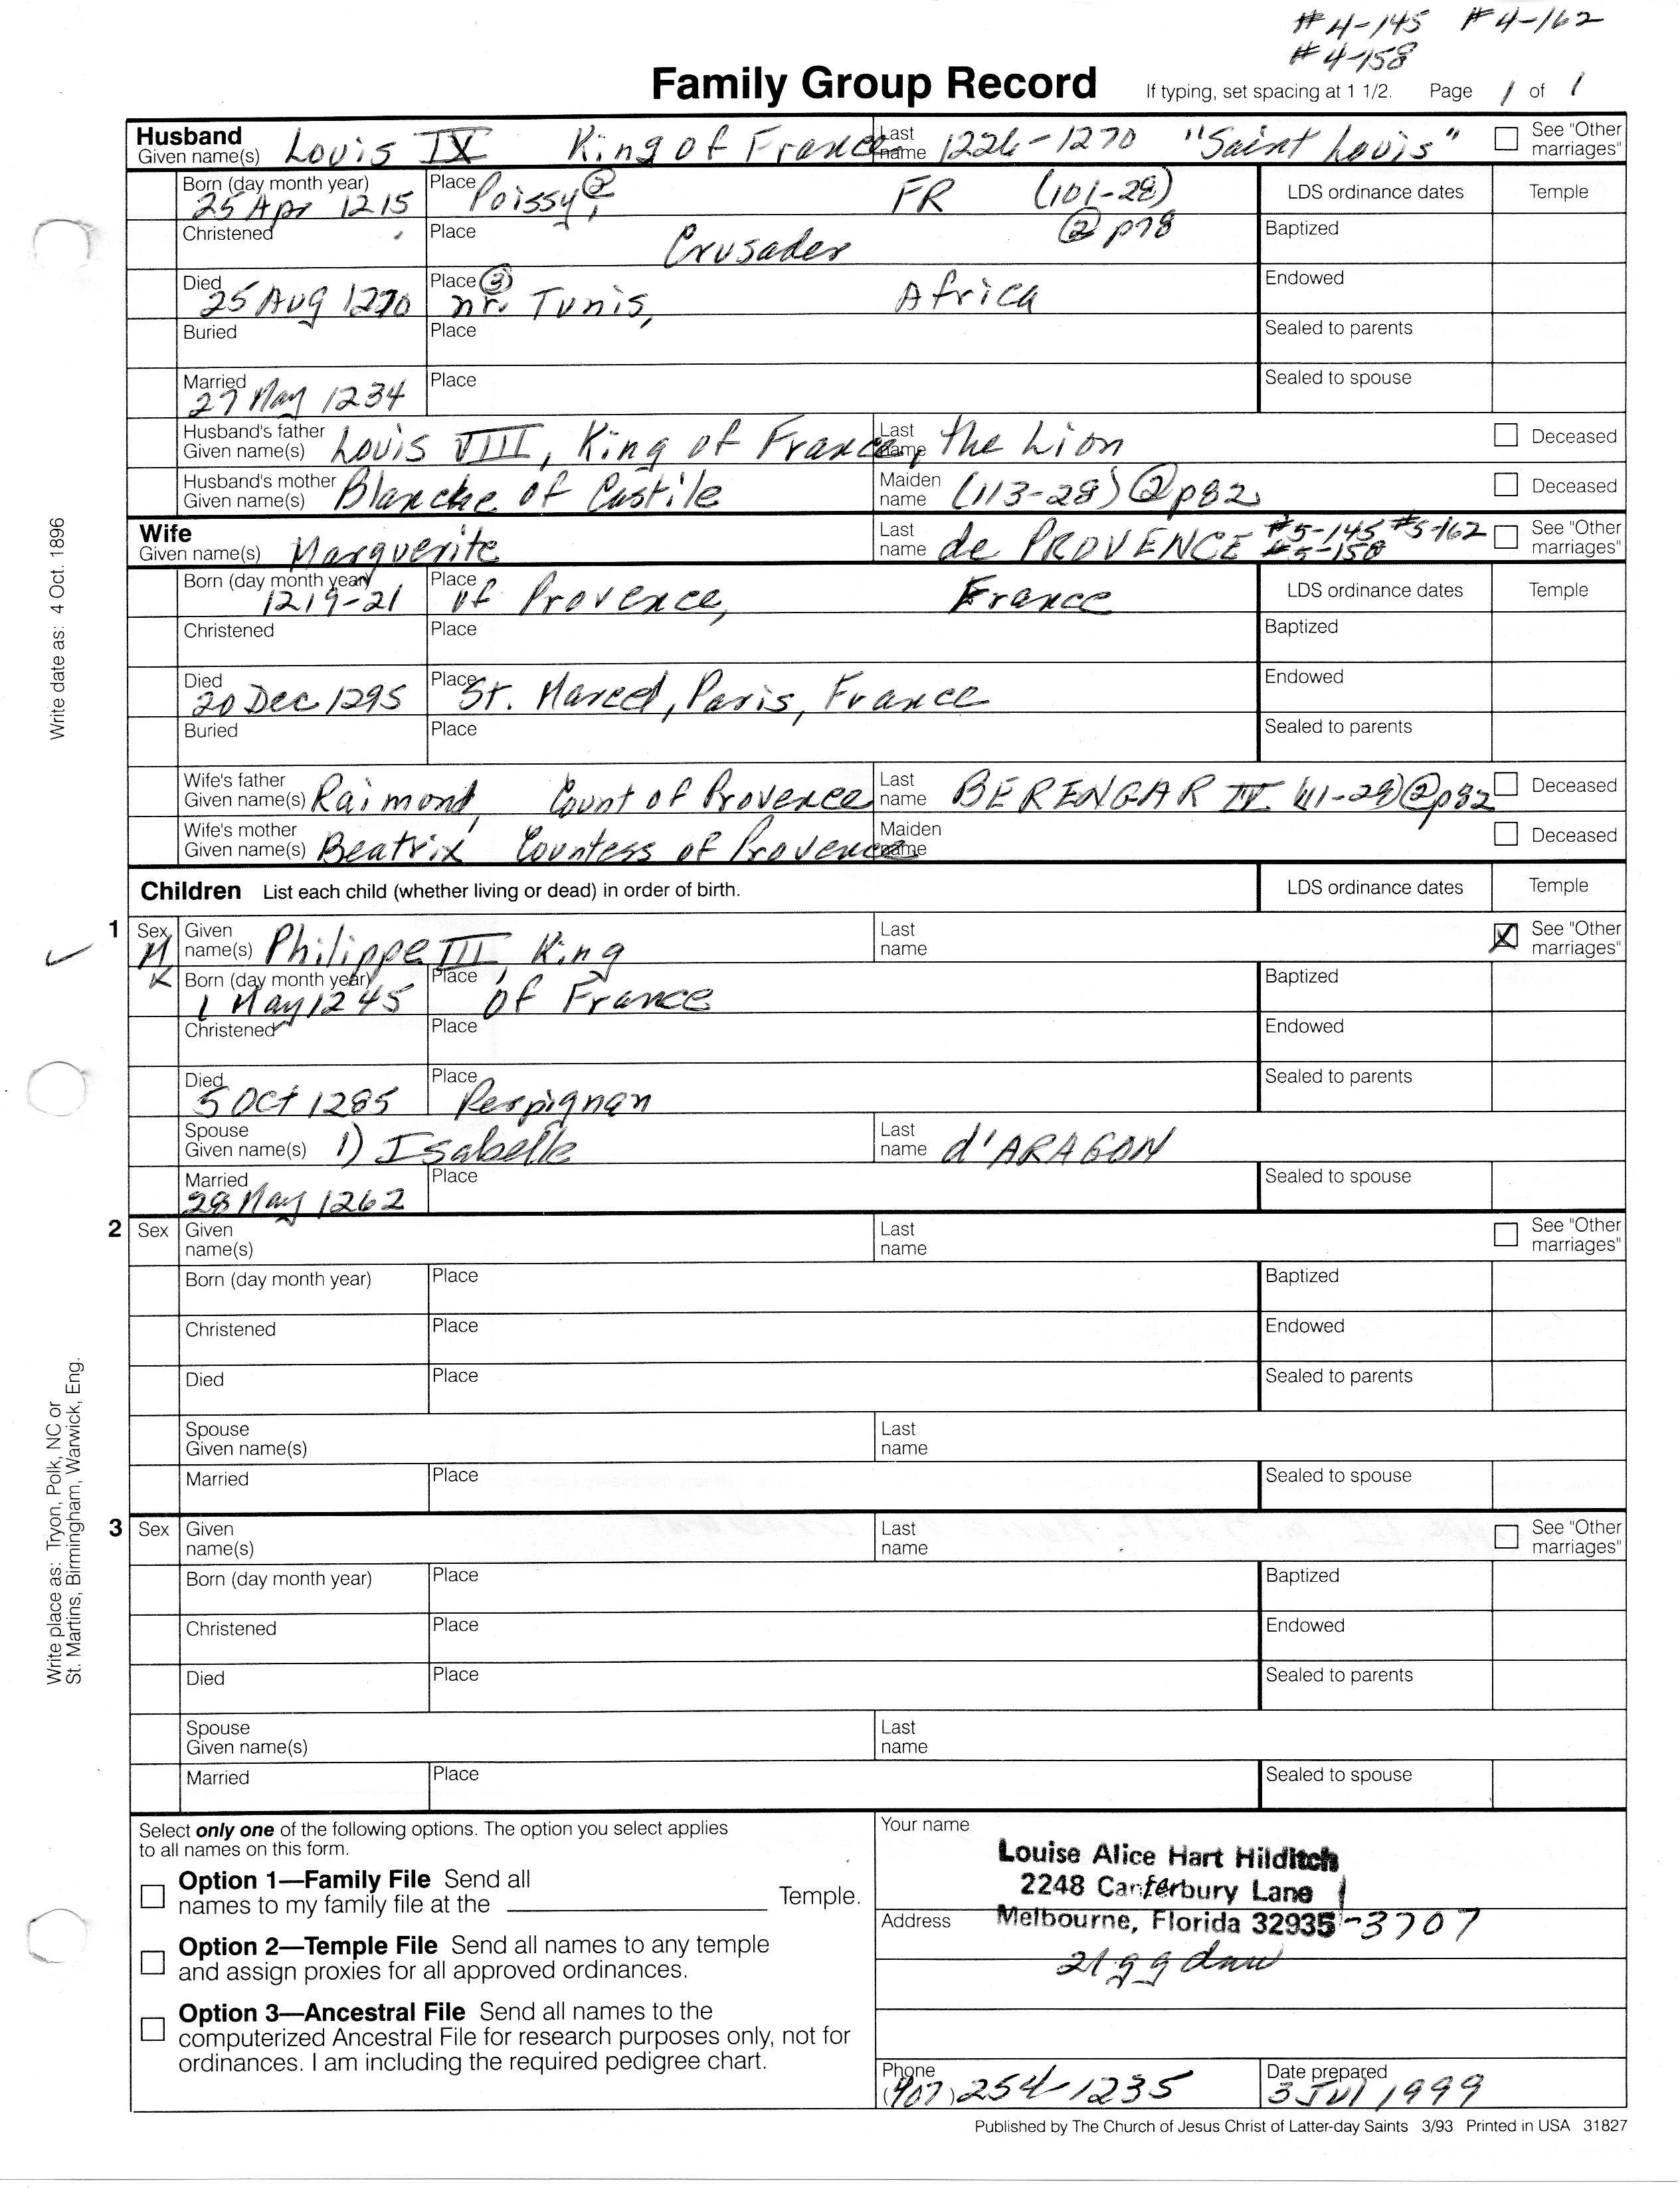 #4-145 #4-162
#4-158
Family Group Record If typing, set spacing at 1 1/2. Page 1 of 1
Husband
Given name(s) Louis IX King of France Last name 1226-1270 "Saint Louis" See "Other marriages"
Born (day month year) 25 Apr 1215 Place Poissy, ② FR (101-28) LDS ordinance dates Temple
Christened Place Crusader ② p78 Baptized
Died 25 Aug 1270 Place ③ nr. Tunis, Africa Endowed
Buried Place Sealed to parents
Married 27 May 1234 Place Sealed to spouse
Husband's father Given name(s) Louis VIII, King of France, Last name the Lion Deceased
Husband's mother Given name(s) Blanche of Castile Maiden name (113-28) ② p82 Deceased
Wife
Given name(s) Marguerite Last name de PROVENCE #5-145 #5-162 #5-158 See "Other marriages"
Born (day month year) 1219-21 Place of Provence, France LDS ordinance dates Temple
Christened Place Baptized
Died 20 Dec 1295 Place St. Marcel, Paris, France Endowed
Buried Place Sealed to parents
Wife's father Given name(s) Raimond, Count of Provence Last name BERENGAR IV (111-29) ② p82 Deceased
Wife's mother Given name(s) Beatrix Countess of Provence Maiden name Deceased
Children List each child (whether living or dead) in order of birth. LDS ordinance dates Temple
1 Sex M Given name(s) Philippe III, King Last name X See "Other marriages"
Born (day month year) 1 May 1245 Place of France Baptized
Christened Place Endowed
Died 5 Oct 1285 Place Perpignan Sealed to parents
Spouse Given name(s) 1) Isabelle Last name d'ARAGON
Married 28 May 1262 Place Sealed to spouse
2 Sex Given name(s) Last name See "Other marriages"
Born (day month year) Place Baptized
Christened Place Endowed
Died Place Sealed to parents
Spouse Given name(s) Last name
Married Place Sealed to spouse
3 Sex Given name(s) Last name See "Other marriages"
Born (day month year) Place Baptized
Christened Place Endowed
Died Place Sealed to parents
Spouse Given name(s) Last name
Married Place Sealed to spouse
Write date as: 4 Oct. 1896
Write place as: Tryon, Polk, NC or
St. Martins, Birmingham, Warwick, Eng.
Select only one of the following options. The option you select applies
to all names on this form.
Option 1—Family File Send all
names to my family file at the Temple.
Option 2—Temple File Send all names to any temple
and assign proxies for all approved ordinances.
Option 3—Ancestral File Send all names to the
computerized Ancestral File for research purposes only, not for
ordinances. I am including the required pedigree chart.
Your name
Louise Alice Hart Hilditch
2248 Canterbury Lane
Address Melbourne, Florida 32935-3707
Phone (407) 254-1235 Date prepared 3 Jul 1999
Published by The Church of Jesus Christ of Latter-day Saints 3/93 Printed in USA 31827